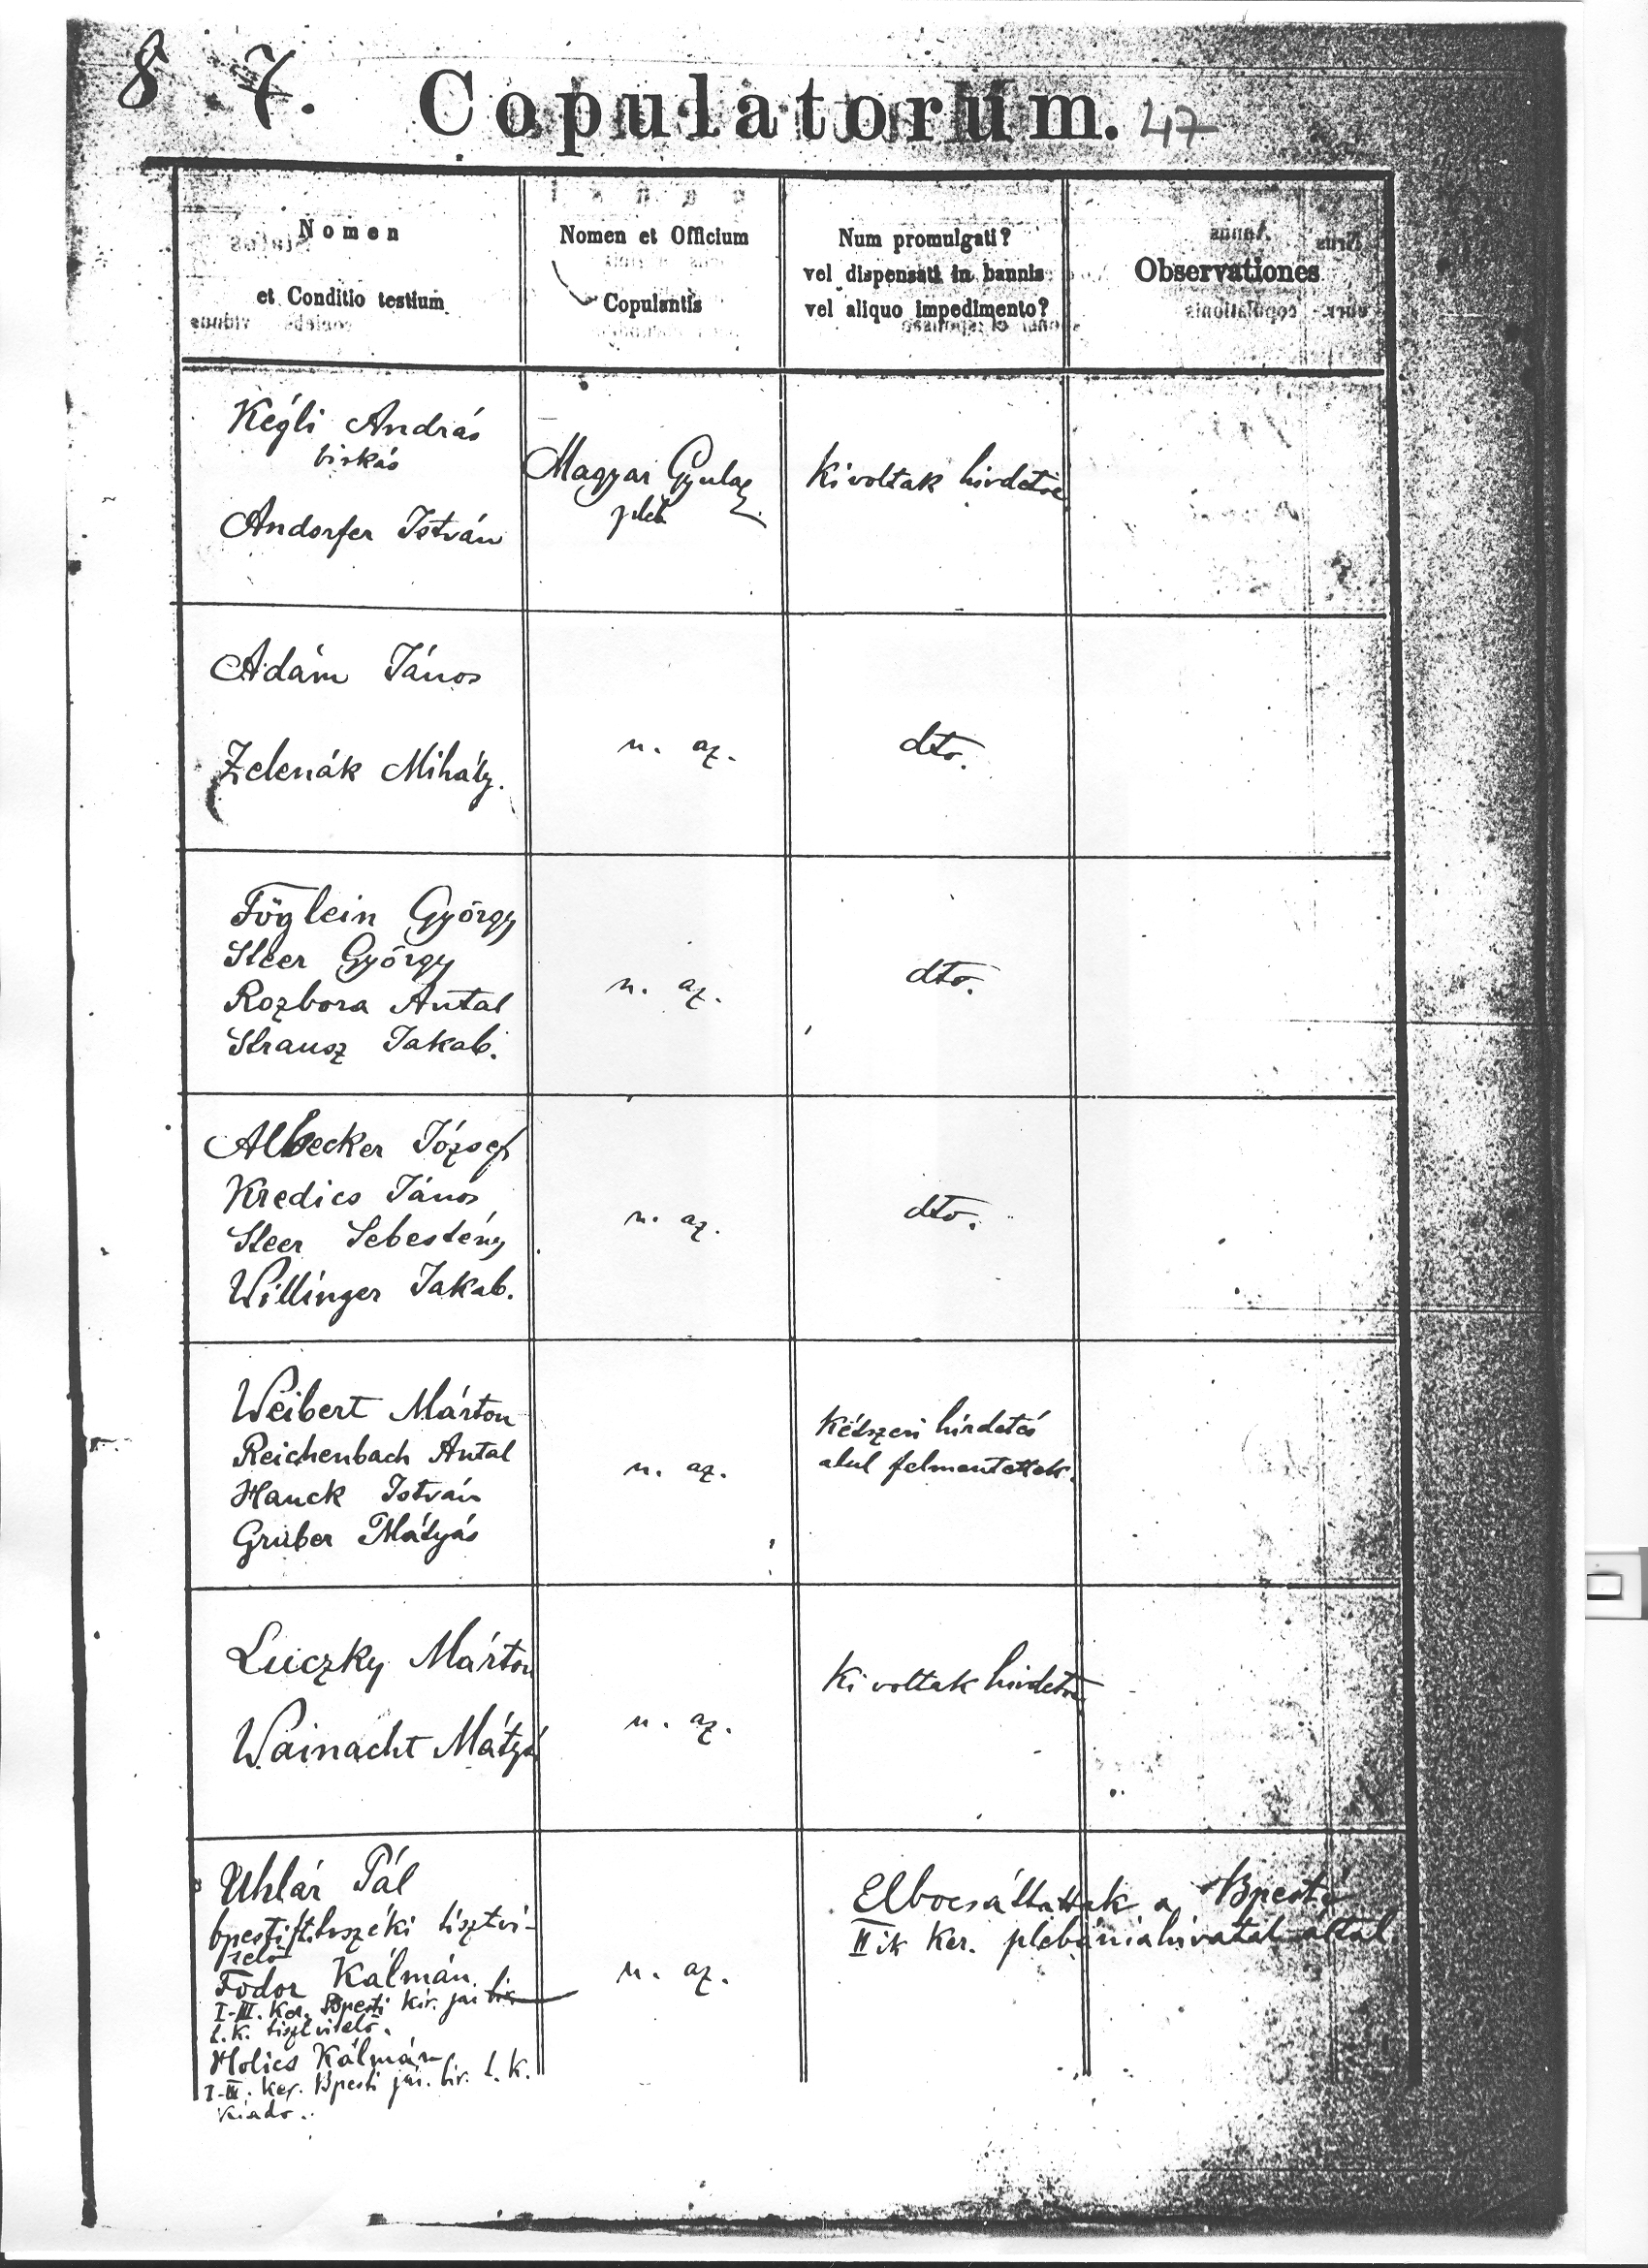 8 7. Copulatorum. 47
Nomen
et Conditio testium
Nomen et Officium
Copulantis
Num promulgati?
vel dispensati in bannis
vel aliquo impedimento?
Observationes
Kégli András
birkás
Andorfer István
Magyar Gyula
pléb
Ki voltak hirdetve
Adám János
Zelenák Mihály.
u. az.
dto.
Föglein György
Steer György
Rozbora Antal
Strausz Jakab.
u. az.
dto.
Albecker József
Kredics János
Steer Sebestény
Willinger Jakab.
u. az.
dto.
Weibert Márton
Reichenbach Antal
Hauck István
Gruber Mátyás
u. az.
Kétszeri hirdetés
alul felmentettek.
Luczky Márton
Wainacht Mátyás
u. az.
Ki voltak hirdetve
Uhlár Pál
bpesti tisztvi-
selő
Fodor Kálmán
I-III. Ker. Bpesti kir. jár. bir.
t. k. tisztviselő.
Holics Kálmán
I-III. Ker. Bpesti jár. bir. t. k.
Kiadó.
u. az.
Elbocsáttattak a Bpesti
II ik Ker. plébániahivatal által